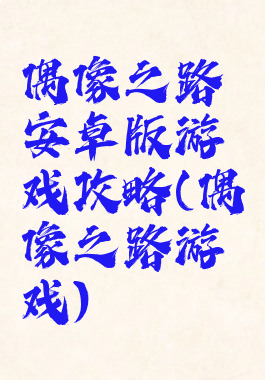 偶像之路
安卓版游
戏攻略(偶
像之路游
戏)